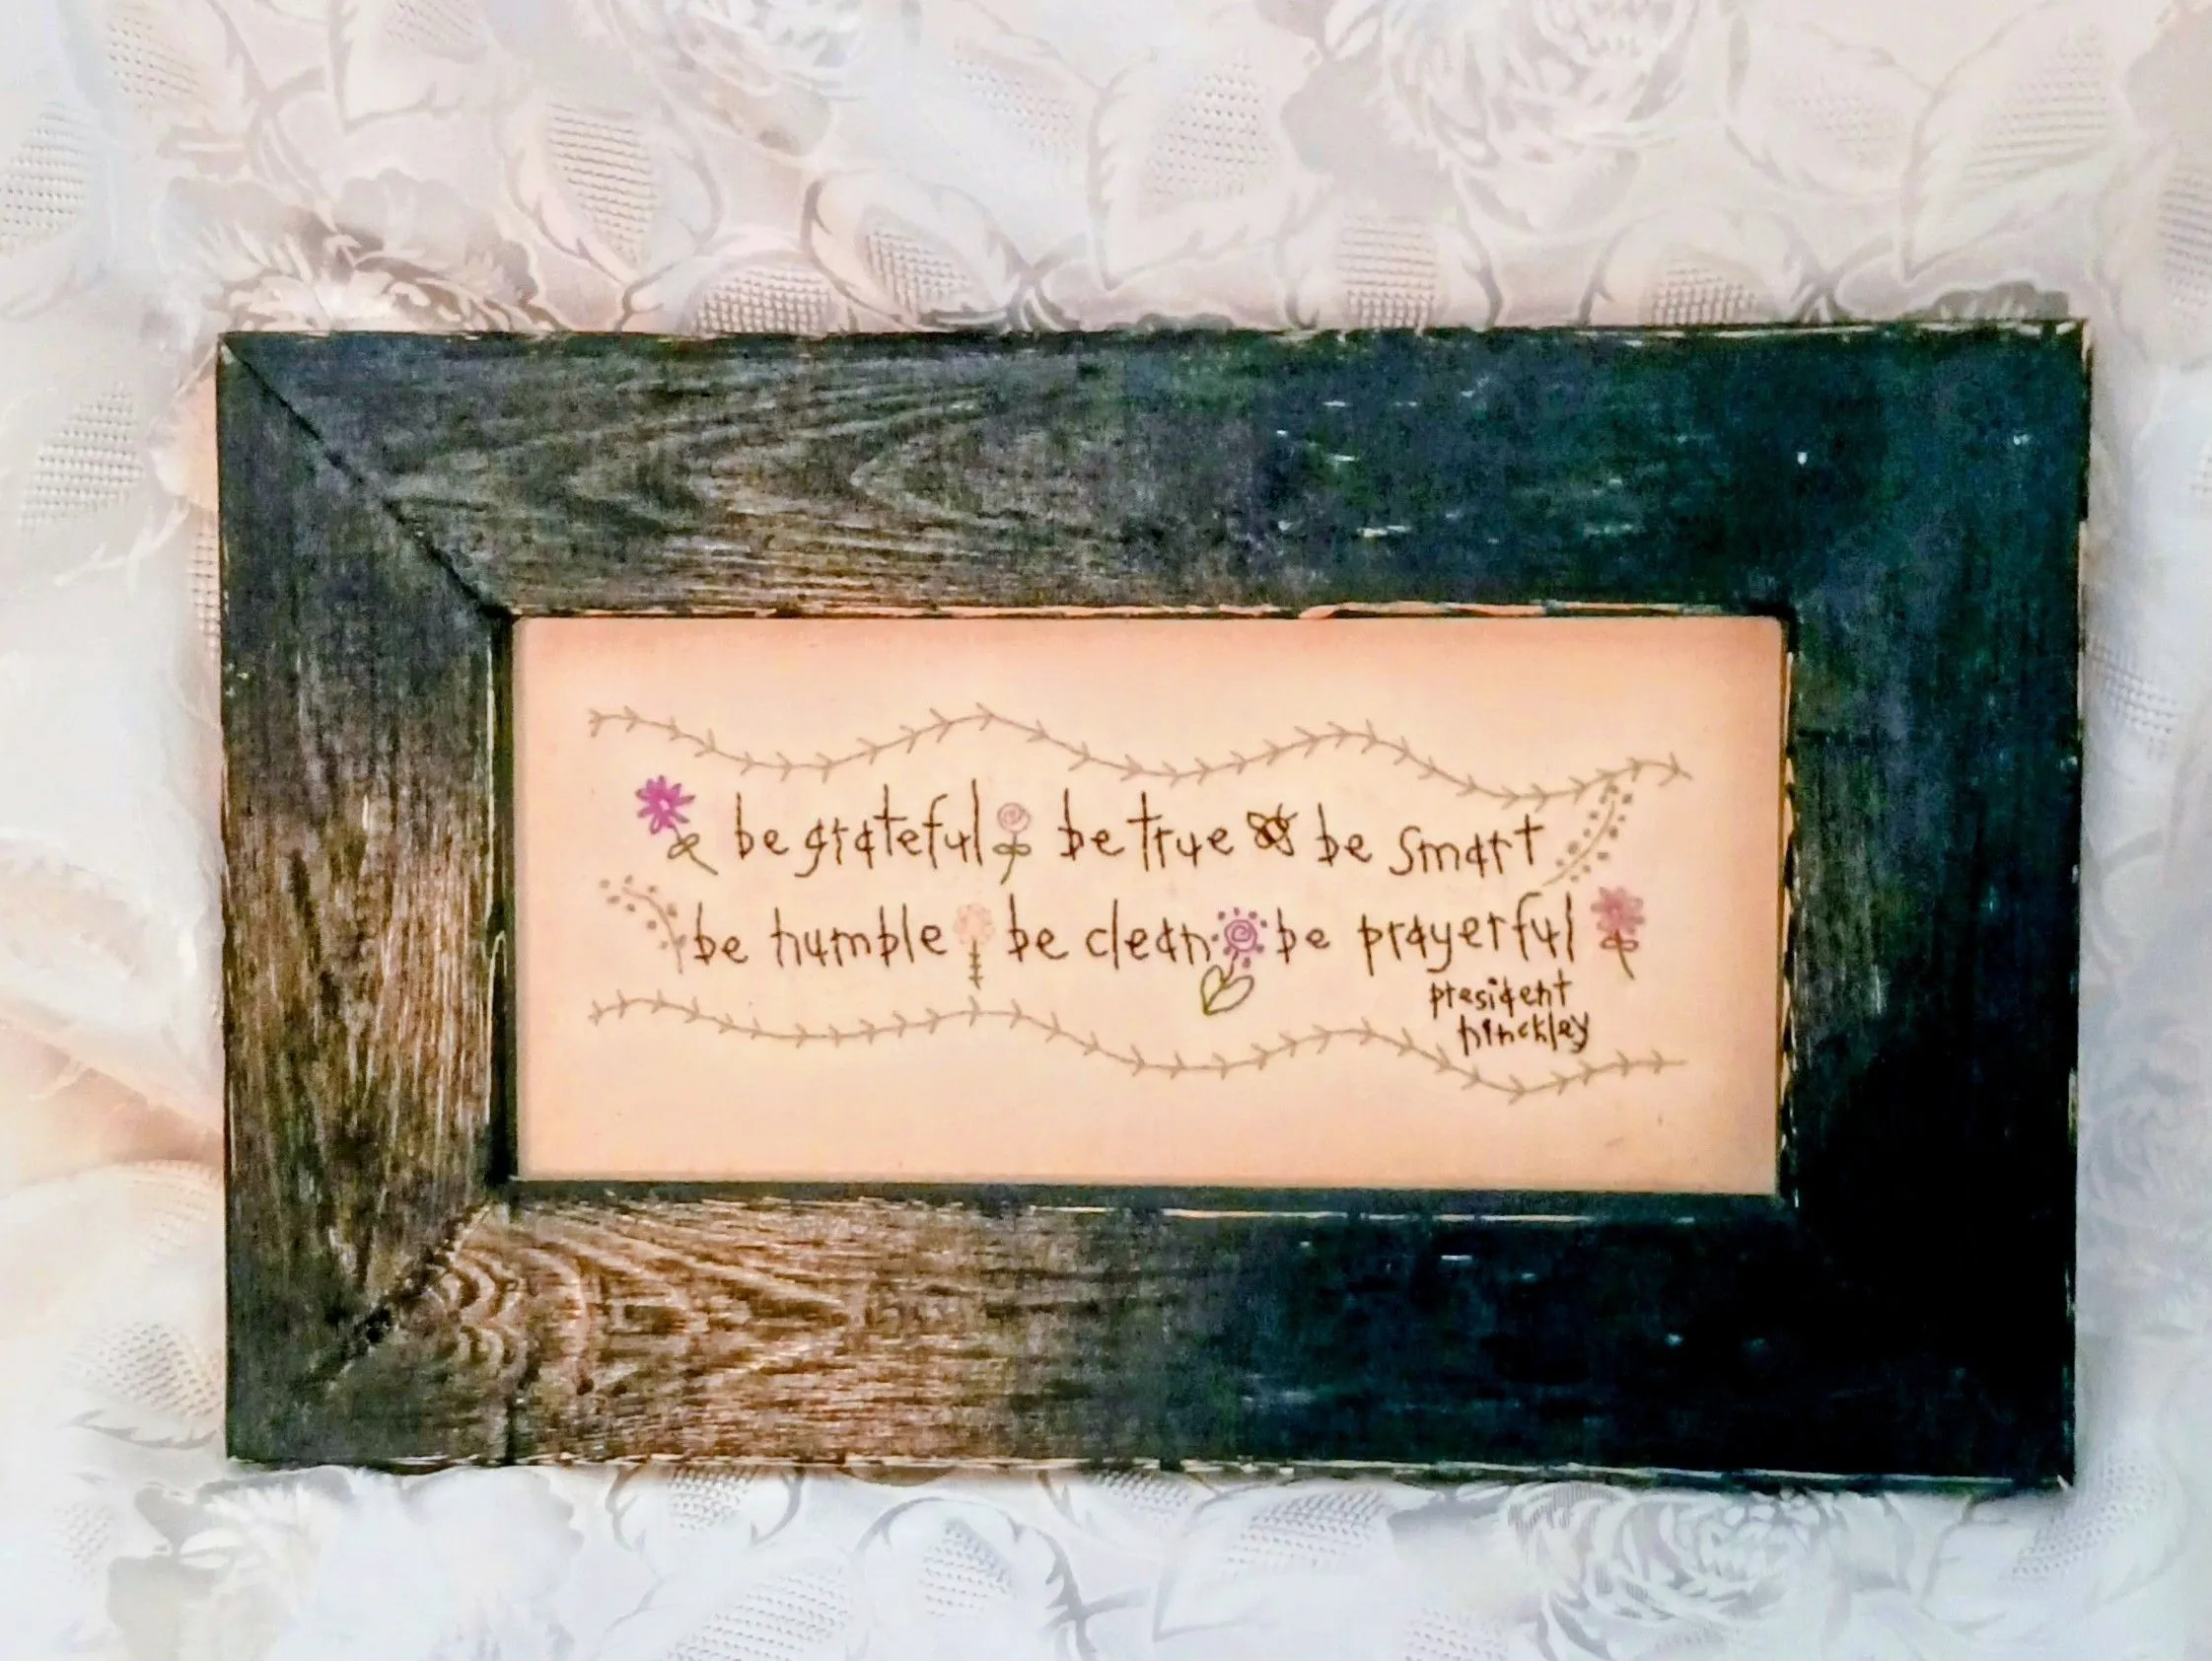 be grateful be true be smart
be humble be clean be prayerful
president
hinckley